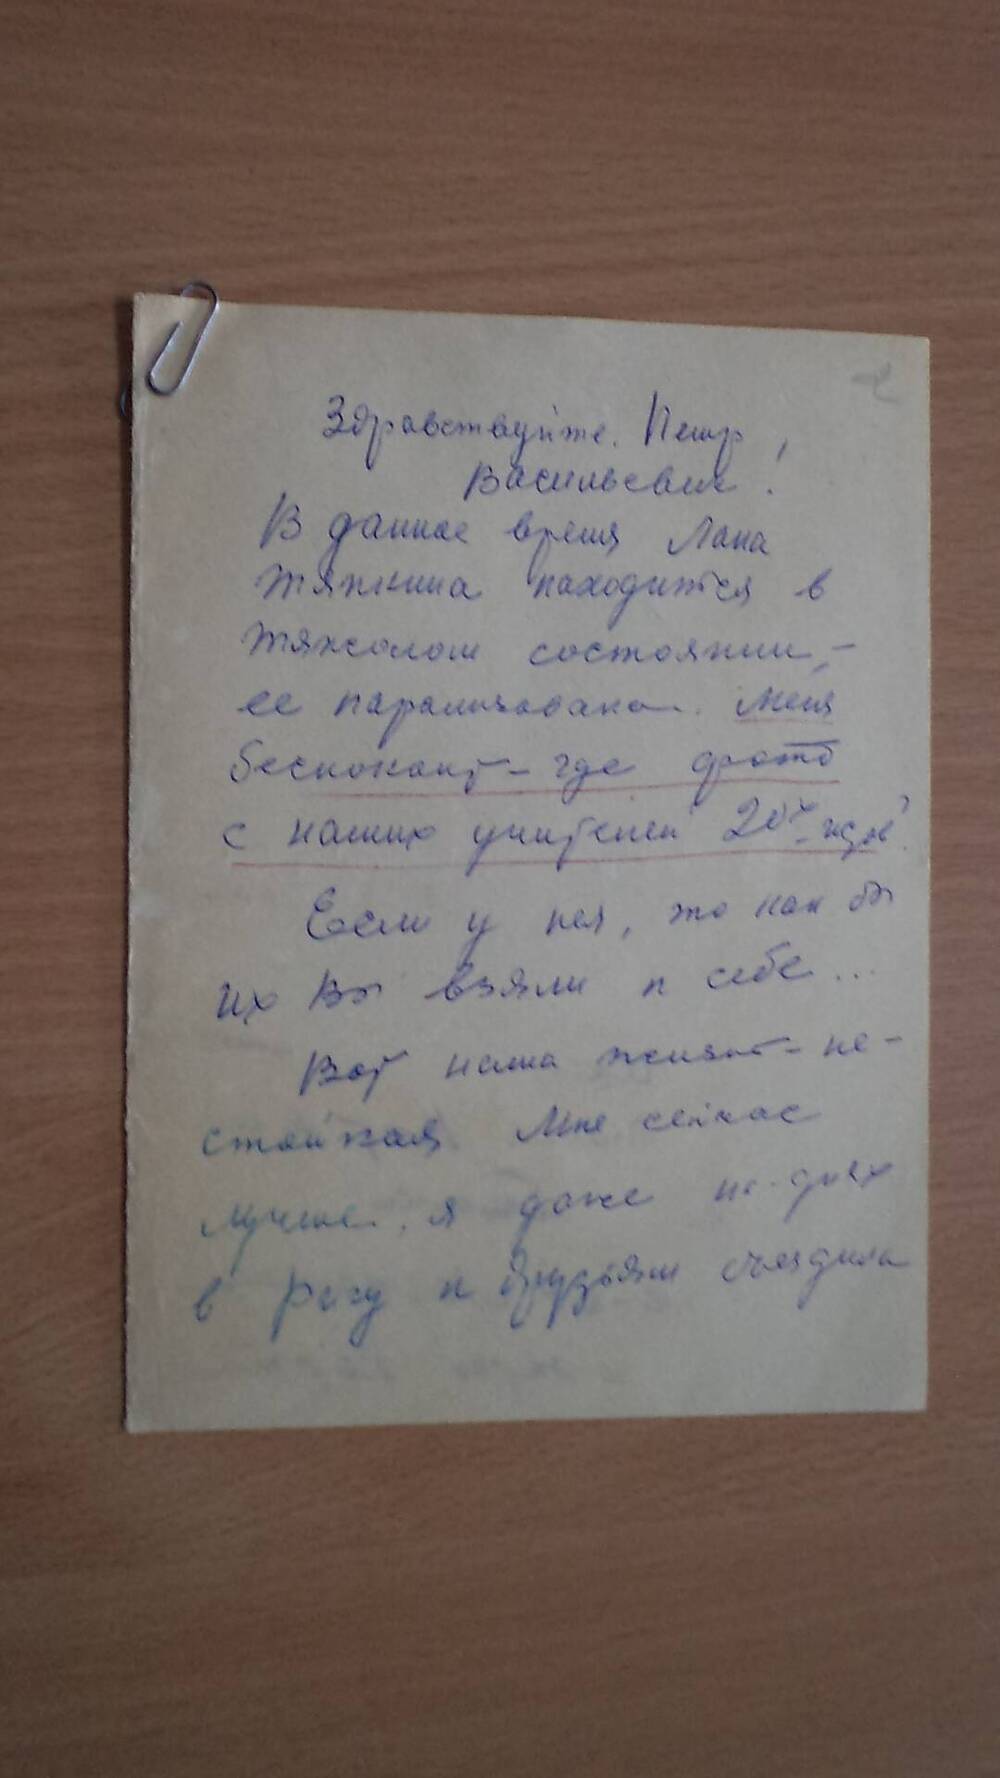 Здравствуйте, Петр
Васильевич!
В данное время Лана
Тяпкина находится в
тяжолом состоянии, –
ее парализовано. Меня
беспокоит – где фото
с наших учителей 20х годов?
Если у нея, то как бы
их Вы взяли к себе...
Вот наша жизнь – не-
стойкая. Мне сейчас
лучше, я даже на-днях
в Ригу к друзьям съездила